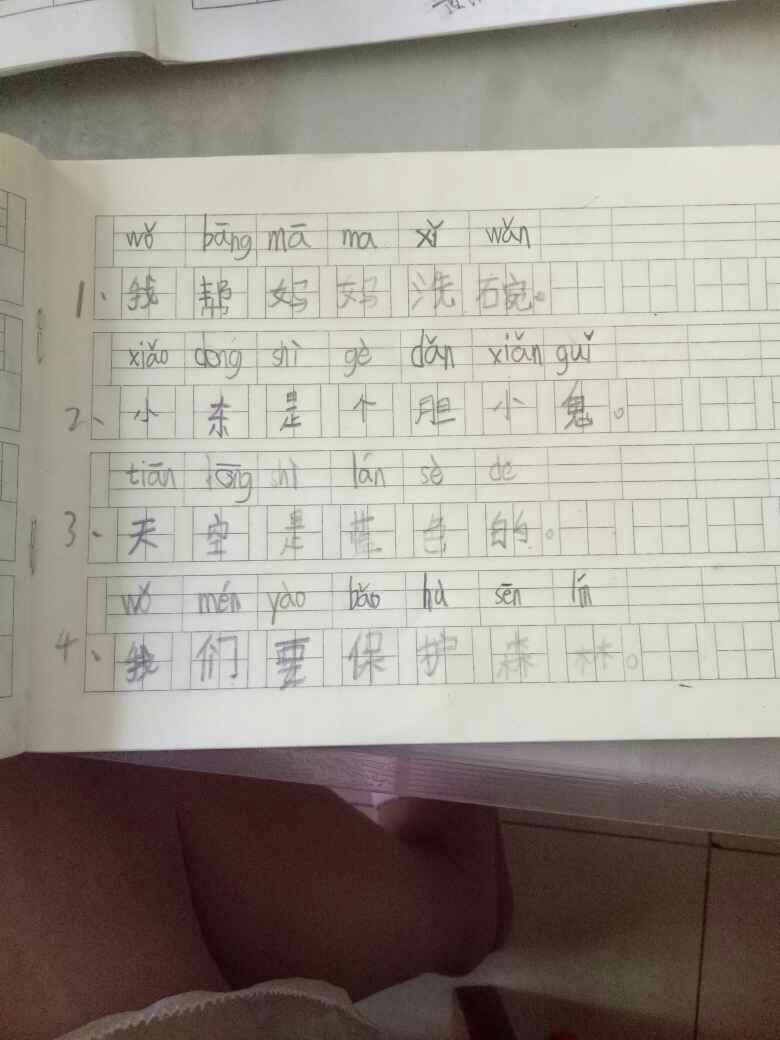 wǒ bāng mā ma xǐ wǎn
1、我帮妈妈洗碗。
xiǎo dōng shì gè dǎn xiǎn guǐ
2、小东是个胆小鬼。
tiān kōng shì lán sè de
3、天空是蓝色的。
wǒ mén yào bǎo hù sēn lín
4、我们要保护森林。